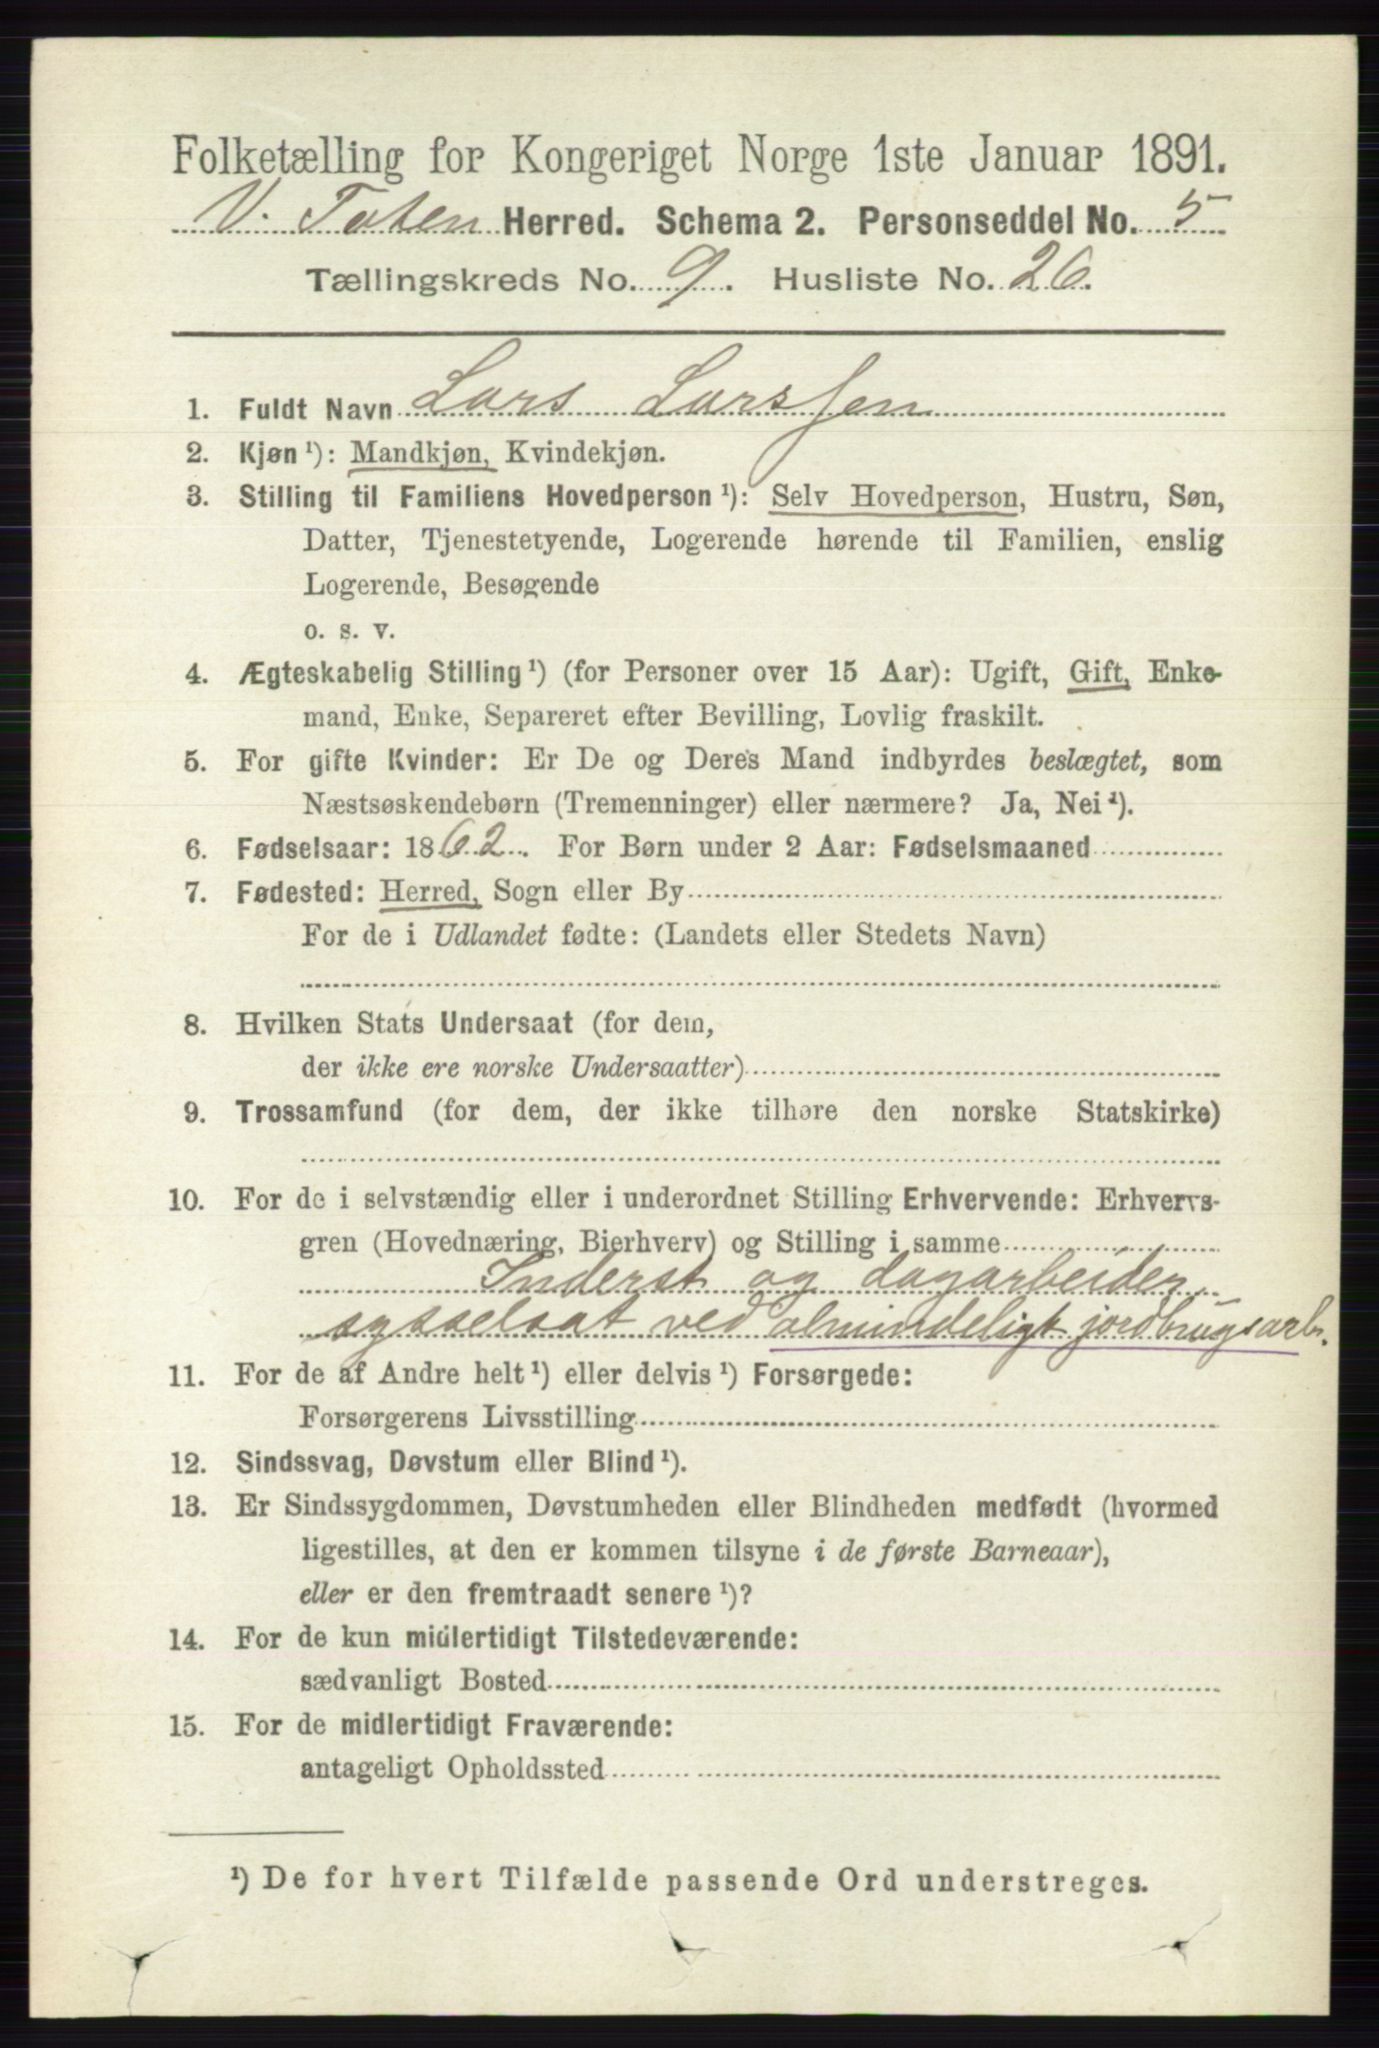 Folketælling for Kongeriget Norge 1ste Januar 1891.
V. Toten Herred. Schema 2. Personseddel No. 5
Tællingskreds No. 9. Husliste No. 26.
1. Fuldt Navn Lars Larssen
2. Kjøn ¹): Mandkjøn, Kvindekjøn.
3. Stilling til Familiens Hovedperson ¹): Selv Hovedperson, Hustru, Søn,
Datter, Tjenestetyende, Logerende hørende til Familien, enslig
Logerende, Besøgende
o. s. v.
4. Ægteskabelig Stilling ¹) (for Personer over 15 Aar): Ugift, Gift, Enke-
mand, Enke, Separeret efter Bevilling, Lovlig fraskilt.
5. For gifte Kvinder: Er De og Deres Mand indbyrdes beslægtet, som
Næstsøskendebørn (Tremenninger) eller nærmere? Ja, Nei ¹).
6. Fødselsaar: 1862. For Børn under 2 Aar: Fødselsmaaned
7. Fødested: Herred, Sogn eller By
For de i Udlandet fødte: (Landets eller Stedets Navn)
8. Hvilken Stats Undersaat (for dem,
der ikke ere norske Undersaatter)
9. Trossamfund (for dem, der ikke tilhøre den norske Statskirke)
10. For de i selvstændig eller i underordnet Stilling Erhvervende: Erhvervs-
gren (Hovednæring, Bierhverv) og Stilling i samme
Inderst og dagarbeider,
sysselsat ved almindeligt jordbrugsarb.
11. For de af Andre helt ¹) eller delvis ¹) Forsørgede:
Forsørgerens Livsstilling
12. Sindssvag, Døvstum eller Blind ¹).
13. Er Sindssygdommen, Døvstumheden eller Blindheden medfødt (hvormed
ligestilles, at den er kommen tilsyne i de første Barneaar),
eller er den fremtraadt senere ¹)?
14. For de kun midlertidigt Tilstedeværende:
sædvanligt Bosted
15. For de midlertidigt Fraværende:
antageligt Opholdssted
¹) De for hvert Tilfælde passende Ord understreges.